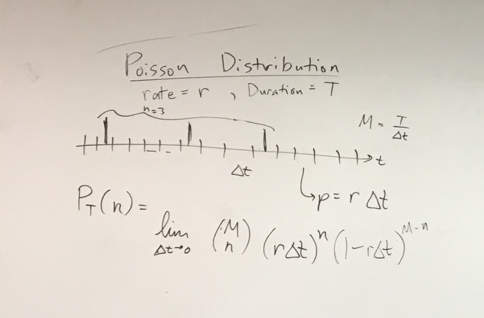 Poisson Distribution
rate = r , Duration = T
n=3
M = T/Δt
t
Δt
p = r Δt
P_T(n) =
lim Δt→0 (M n) (rΔt)^n (1-rΔt)^M-n